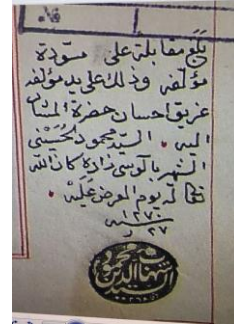 بلغ مقابلة على مسودة
مؤلفه وذلك على يد مؤلفه
غريق احسان حضرة المشار
اليه السيد محمود الحسيني
الشهير بآلوسي زاده كان الله
تعالى له يوم العرض عليه
١٢٧٠
٢٧